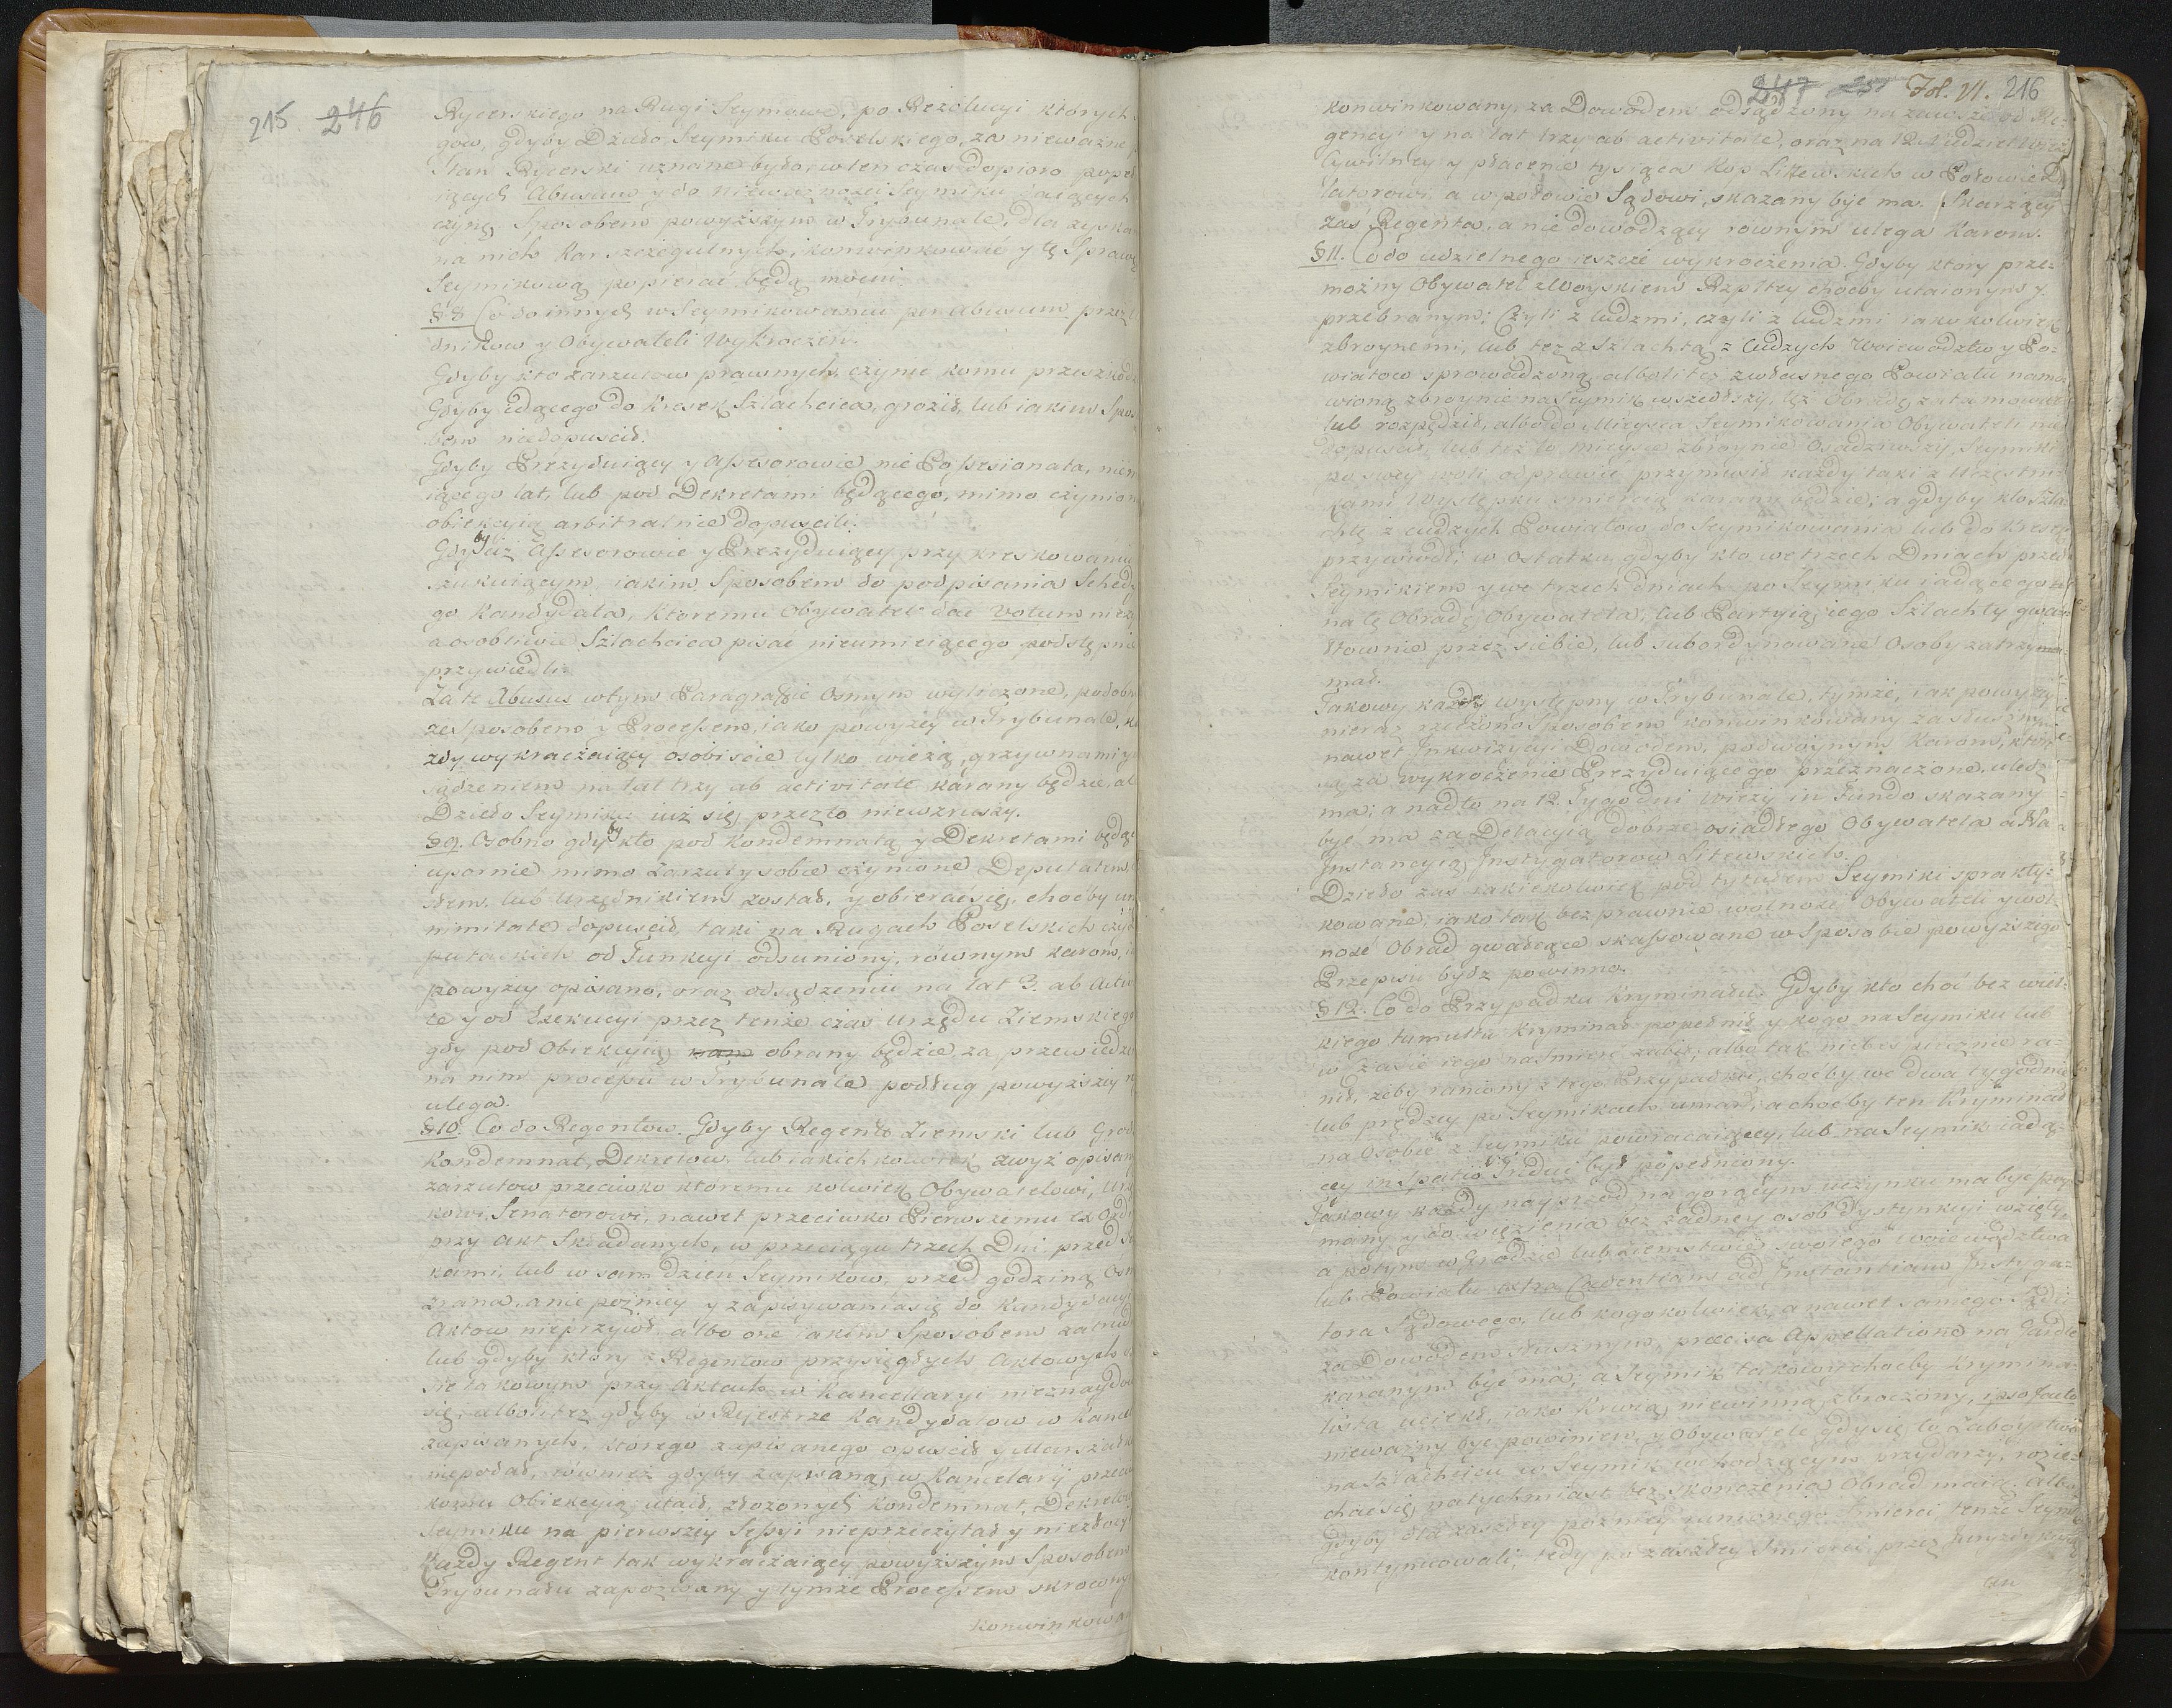 215 246
Rycerskiego na Rugi Seymowe, po Rezolucyi których
gow, gdyby Dzieło Seymiku Poselskiego, za nieważne
Stan Rycerski uznane było, w ten czas dopioro popeł
iących Abusum y do nieważności Seymiku
czynę Sposobem powyższym w Trybunale, dla zyska
na nich Kar szczegulnych, konwinkować y tę Sprawę
Seymikową popierać będą mocni.
§ 8 Co do innych w Seymikowaniu per Abusum przez U
dnikow y Obywateli Wykroczeń.
Gdyby kto zarzutow prawnych, czynić komu przeszkodz
Gdyby idącego do Kresek Szlachcica, groził, lub iakim Spos
bem niedopuscił.
Gdyby Prezyduiący y Assesorowie nie Possesionata, niem
iącego lat, lub pod Dekretami będącego, mimo czynion
obiekcyią arbitralnie dopuscili.
Gdyby iż Assesorowie y Prezyduiący przy kreskowaniu
szukuiącym iakim Sposobem do podpisania Sched
go Kandydata, ktoremu Obywatel dać votum nie
a osobliwie Szlachcica pisać nieumieiącego podstępnie
przywiedli.
Za te Abusus w tym Paragrafie Osmym wyliczone, podobn
ze Sposobem y Processem, iako powyżey w Trybunale, ka
zdy wykraczaiący osobiscie tylko wieżą, grzywnami y
sądzeniem na lat trzy ab activitate karany będzie, al
Dzieło Seymiku iuż się przez to niewzruszy.
§ 9. Osobno gdyby kto pod Kondemnatą y Dekretami będąc
upornie mimo Zarzuty sobie czynione Deputatem,
słem, lub Urzędnikiem został, y obierać się, choćby un
nimitate dopuscił, taki na Rugach Poselskich czyli
putackich od Funkcyi odsuniony, równym karom, i
powyżey opisano, oraz odsądzeniu na lat 3. ab Activ
te y od Exekucyi przez tenże czas Urzędu Ziemskiego
gdy pod Obiekcyią obrany będzie, za przewiedze
na nim processu w Trybunale podług powyższey
ulega.
§ 10. Co do Regentow. Gdyby Regent Ziemski lub Grod
Kondemnat, Dekretow, lub iakichkolwiek zwyż opisan
zarzutow przeciwko ktoremu kolwiek Obywatelowi, Urz
kowi, Senatorowi, nawet przeciwko Pierwszemu ex Ordi
przy Akt Składanych, w przeciągu trzech Dni przed S
kami, lub w sam dzień Seymikow, przed godziną Osm
zrana, a nie pozniey y zapisywania się do Kandydacyi
Aktow nieprzyiął, albo one iakim Sposobem zatrud
lub gdyby ktory z Regentow przysięgłych Aktowych
nie takowym przy Aktach w Kancellaryi nieznaydow
się; albo też gdyby w Rejestrze Kandydatow w Kanc
zapisanych, ktorego zapisanego opuscił y Marszałk
niepodał, również gdyby zapisaną w Kancelarij przeciw
komu Obiekcyią utaił, złożonych Kondemnat, Dekretow
Seymiku na pierwszey Sessyi nieprzeczytał y niezłoż
Każdy Regent tak wykraczaiący powyższym Sposobem
Trybunału zapozwany y tymże Processem skrowny
Konwinkowa
247 Fol. 21. 216
konwinkowany, za Dowodem odsądzony na zawsze od Re-
gencyi y na lat trzy ab activitate, oraz na 12 Niedziel Wieży
Cywilney y płacenie tysiąca Kop Litewskich w Połowie D
latorowi, a w połowie Sądowi, skazany być ma. Skarzący
zaś Regenta, a nie dowodzący rownym ulega Karom.
§ 11. Co do udzielnego ieszcze wykroczenia. Gdyby ktory prze-
możny Obywatel z Woyskiem Rzpltey choćby utaionym y
przebranym; Czyli z ludzmi, czyli z ludzmi iako kolwiek
zbroynemi, lub też z Szlachtą z Cudzych Woiewodztw y Po-
wiatow sprowadzoną albo li też z własnego Powiatu namo-
wioną zbroynie na Seymik wszedłszy, też Obradę zatamował
lub rozpędził, albo do Mieysca Seymikowania Obywateli nie
dopuscił, lub też to mieysce zbroynie Osadziwszy, Seymiki
po swey woli odprawić przymusił każdy taki z Uczestni-
kami Występku śmiercią karany będzie; a gdyby kto Szla
chtę z cudzych Powiatow do Seymikowania lub do Kresek
przywiodł; w Ostatku gdyby kto we trzech Dniach przed
Seymikiem y we trzech dniach po Seymiku iadącego
na tę Obradę Obywatela, lub Partyią iego Szlachty gwa-
łtownie przez siebie, lub subordynowane Osoby zatrzy-
mał.
Takowy każdy występny w Trybunale, tymże, iak powyżey
nieraz rzeczono Sposobem konwinkowany za słusznym
nawet Inkwizycyi Dowodem, podwoynym Karom, które
są za wykroczenie Prezyduiącego przeznaczone, uledz
ma; a nadto na 12. Tygodni Wieży in Fundo skazany
być ma za Delacyią dobrze osiadłego Obywatela a Na
Instancyią Instygatorow Litewskich.
Dzieło zaś iakiekolwiek pod tytułem Seymiki sprakty-
kowane, iako tak bezprawnie wolność Obywateli y wol-
ność Obrad gwałcące skassowane w Sposobie powyższego
Przepisu bydz powinno.
§ 12. Co do Przypadku Kryminału. Gdyby kto choć bez wiel-
kiego tumultu Kryminał popełnił y kogo na Seymiku lub
w czasie iego na śmierć zabił, albo tak niebespiecznie ra-
nił, żeby raniony z tego Przypadku, choćby we dwa tygodnie
lub prędzey po Seymikach umarł; a choćby ten Kryminał
na Osobie z Seymiku powracaiącey, lub na Seymik iadą-
cey in Spatio Tridui był popełniony.
Takowy każdy nayprzód na gorącym uczynku ma być poy
many y do więzienia bez żadney osob Dystynkcyi wzięty,
a potym w Grodzie lub Ziemstwie swoiego Woiewodztwa
lub Powiatu extra Cadentiam ad Instantiam Instyga-
tora Sądowego, lub kogokolwiek, a nawet samego Sądu
za Dowodem słusznym, praecisa Appellatione na Gardle
karanym być ma; a Seymik takowy choćby Krymina
lista uciekł, iako Krwią niewinną zbroczony, ipso facto
nieważny być powinien, y Obywatele gdy się to Zaboystwo
na Szlachcicu w Seymik wchodzącym przydarzy, rozie-
chać się natychmiast bez skończenia Obrad maią, albo
Gdyby dla zaszłey pozniey ranionego Śmierci, tenże Seymik
kontynuowali, tedy po zaszłey Śmierci przez Juryzdykcyią